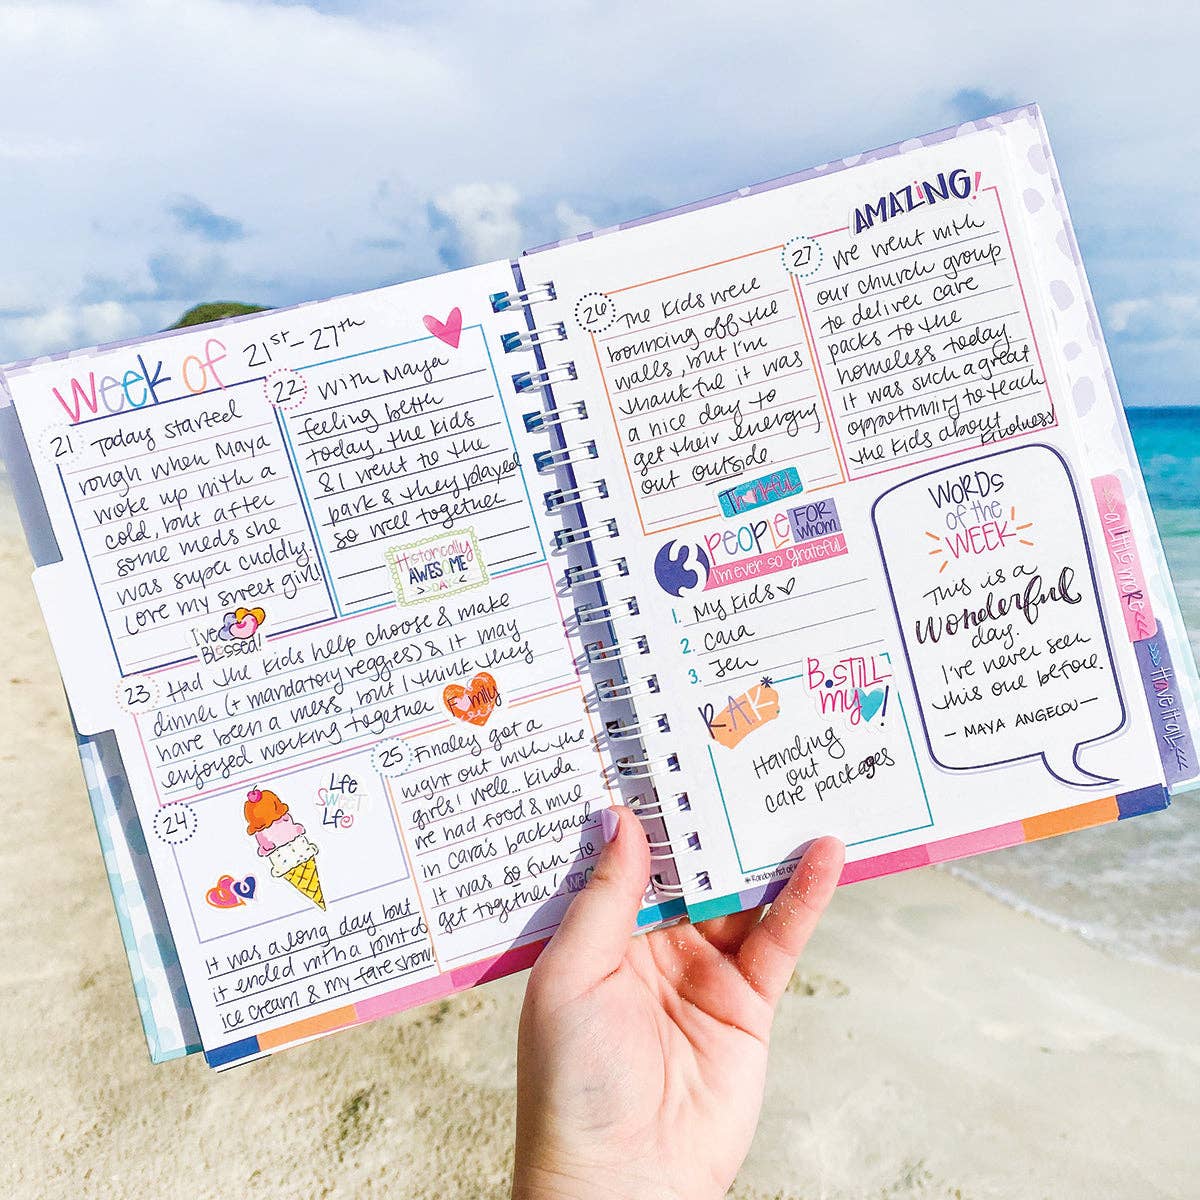 Week of 21st-27th
21
Today started
rough when Maya
woke up with a
cold, but after
some meds she
was super cuddly.
Love my sweet girl!
I've
BLessed!
22
With Maya
feeling better
today, the kids
& I went to the
park & they played
so well together
Historically
AWESOME
>>DAY<<
23
Had the kids help choose & make
dinner (+ mandatory veggies) & it may
have been a mess, but I think they
enjoyed working together
Family
24
Life
SWEET
Life
It was a long day but
it ended with a pint of
ice cream & my fave show!
25
Finaley got a
night out with the
girls! Well... kinda.
We had food & wine
in Cara's backyard.
It was so fun to
get together!
26
The kids were
bouncing off the
walls, but I'm
thankful it was
a nice day to
get their energy
out outside.
Thankful
AMAZING!
27
We went with
our church group
to deliver care
packs to the
homeless today.
It was such a great
opportunity to teach
the kids about
kindness
3 people FOR
whom
I'm ever so grateful
1. My kids ♡
2. Cara
3. Jen
R.A.K*
B.STILL
my !
Handing
out
care packages
WORDS
of the
WEEK
This is a
wonderful
day.
I've never seen
this one before.
— MAYA ANGELOU —
a little more <<
>>> Have it all <<<